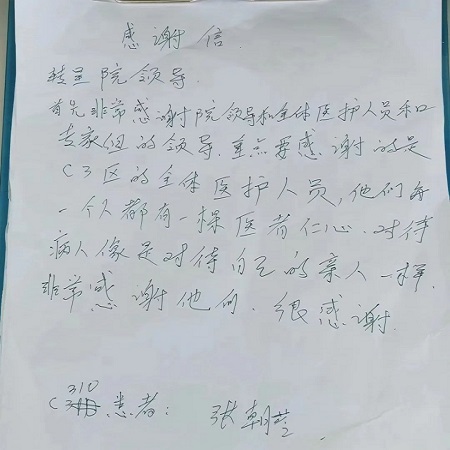 感谢信
转呈院领导
首先非常感谢院领导和全体医护人员和
专家组的领导.重点要感谢的是
C3区的全体医护人员,他们每
一个人都有一棵医者仁心.对待
病人像是对待自己的亲人一样.
非常感谢他们.很感谢.
C310患者: 张朝